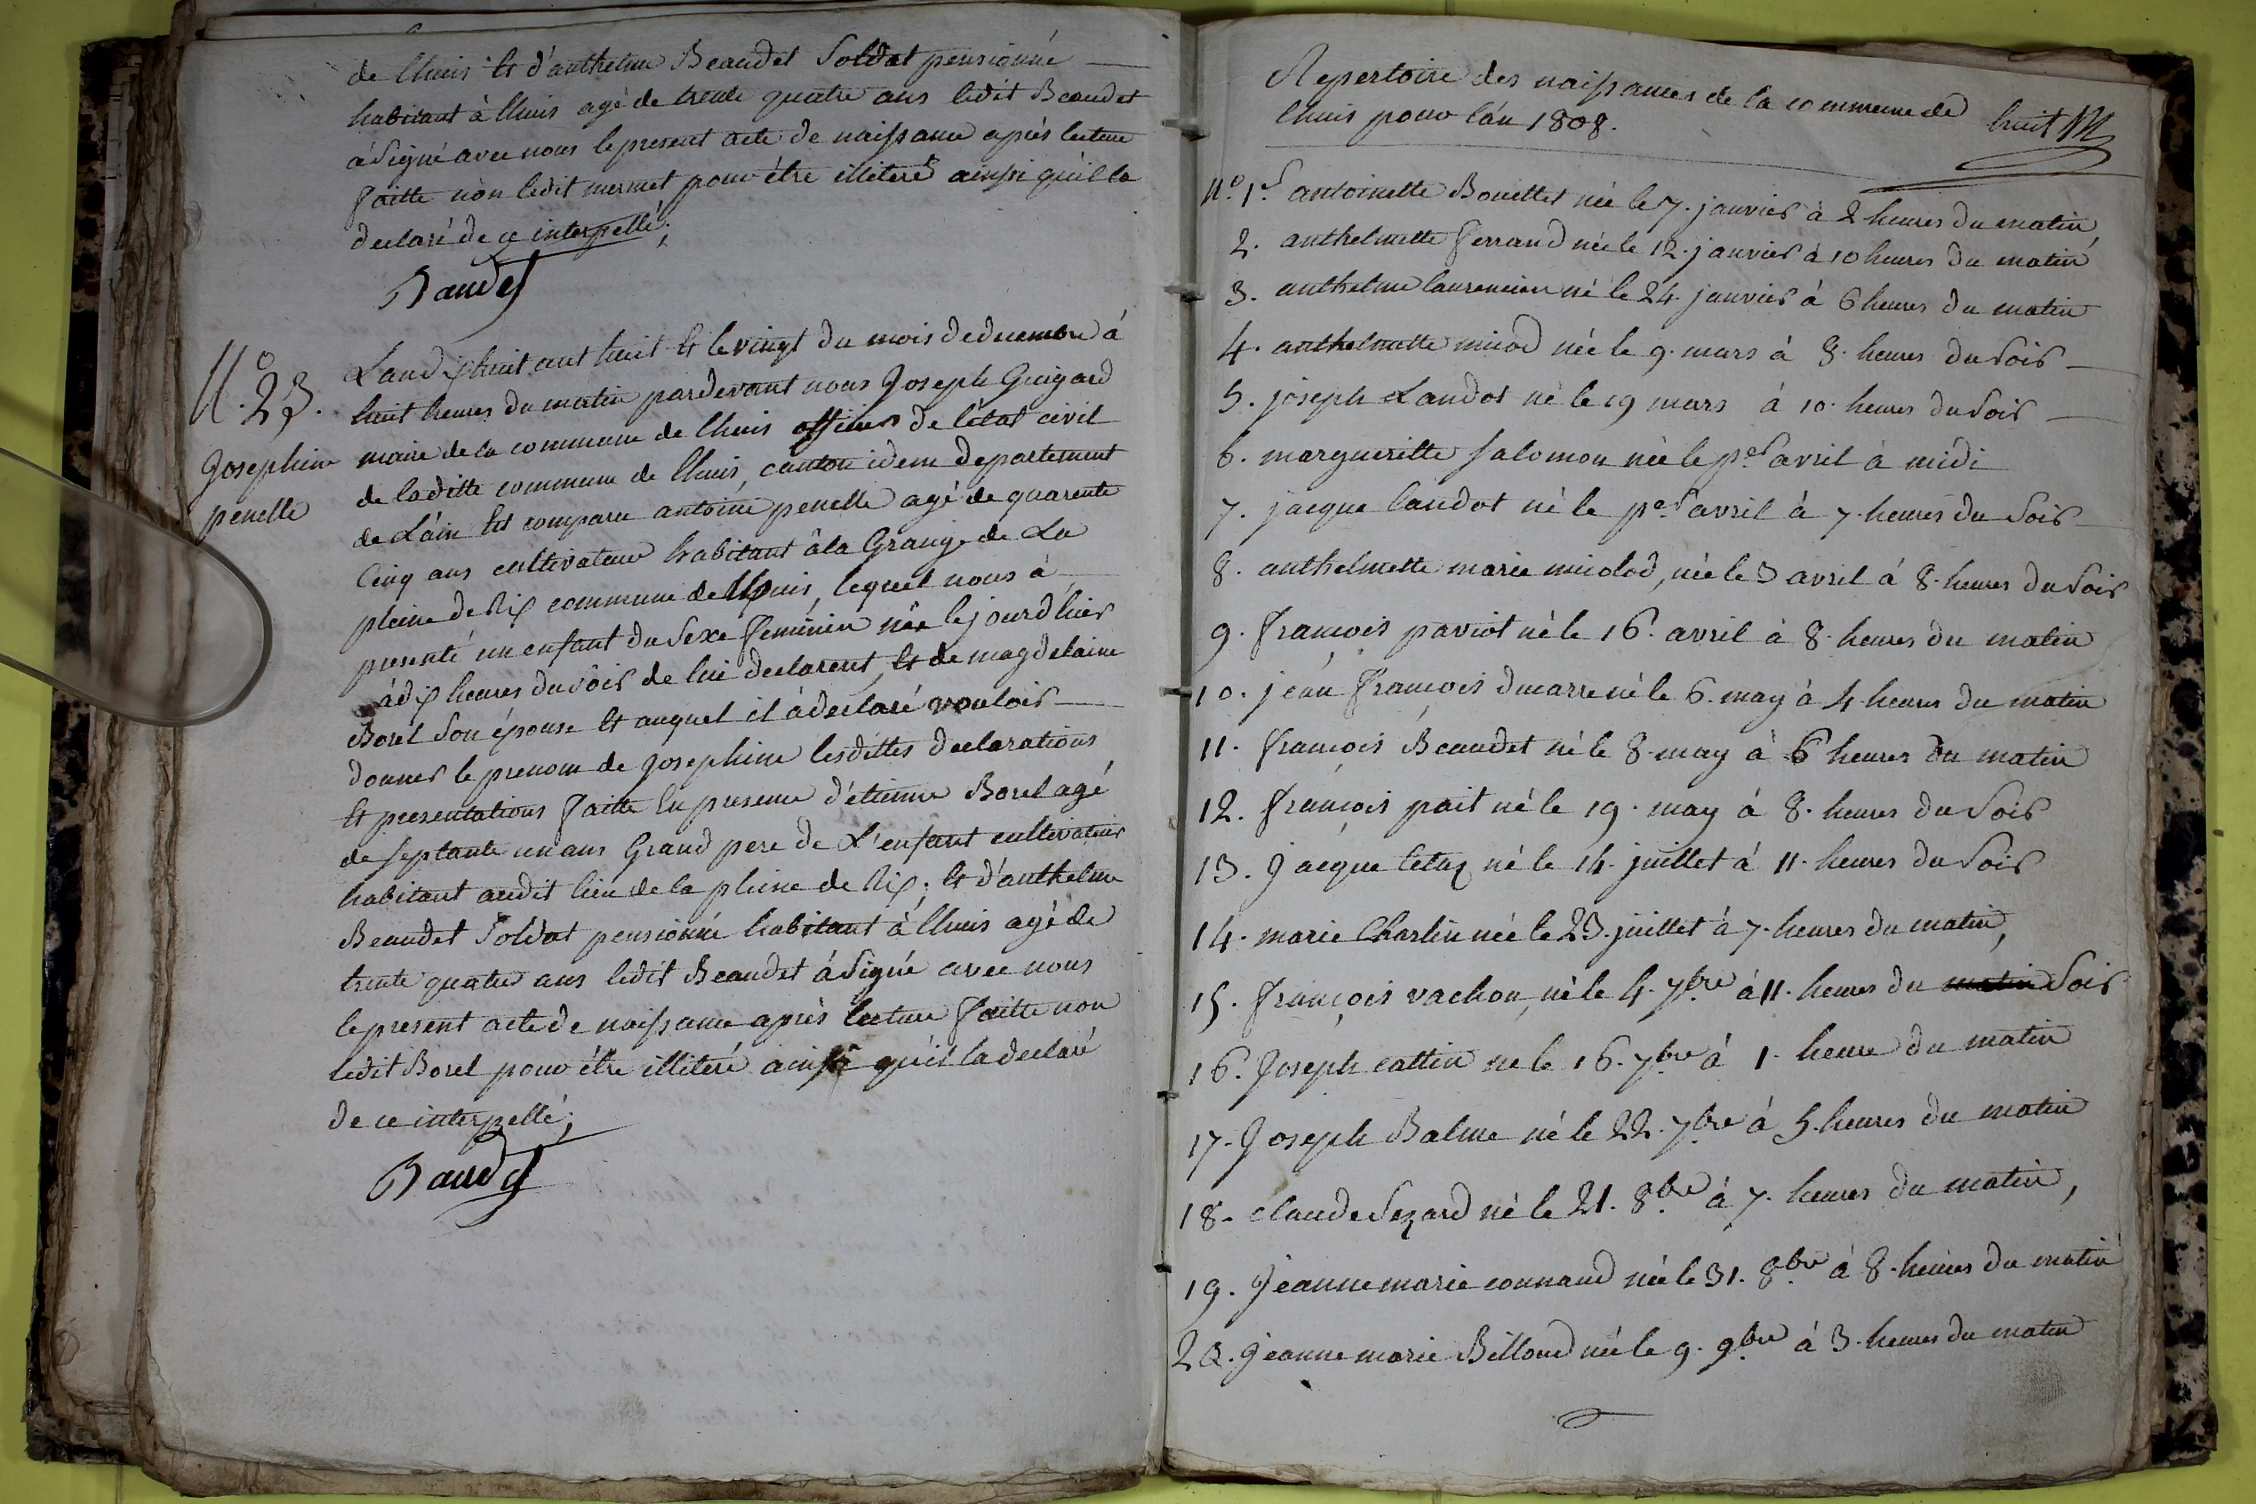 de lhuis Et d'anthelme Beaudet Soldat pensionné
habitant à lhuis agé de trente quatre ans ledit Beaudet
à Signé avec nous le present acte de naissance après lecture
faitte non ledit mermet pour être illiteré ainsi quil la
declaré de ce interpellé;
Baudet
N.o 23.
Josephine
penelle
L'an dix huit cent huit Et le vingt du mois de decembre à
huit heures du matin pardevant nous Joseph Guigard
maire de la commune de lhuis officier de l'état civil
de laditte commune de lhuis, canton idem departement
de L'ain Est comparu antoine penelle agé de quarente
Cinq ans cultivateur habitant à la Grange de La
pleine de Rix commune de lhuis, lequel nous à
presenté un enfant du Sexe feminin née le jourdhier
à dix heures du soir de lui declarent, Et de magdelaine
Borel Son épouse Et auquel il à declaré vouloir
donner le prenom de josephine lesdittes declarations
Et presentations faitte En presence d'étienne Borel agé
de septante un ans Grand pere de L'enfant cultivateur
habitant audit lieu de la pleine de Rix; Et d'anthelme
Beaudet Soldat pensionné habitant à lhuis agé de
trente quatre ans ledit Beaudet à Signé avec nous
le present acte de naissance après lecture faitte non
ledit Borel pour être illiteré ainsi qu'il la declaré
de ce interpellé;
Baudet
Repertoire des naissances de la commune de
lhuis pour l'an 1808.
huit
N.o 1.er antoinette Bouettet née le 7. janvier à 2 heures du matin
2. anthelmette ferrand née le 12. janvier à 10 heures du matin
3. anthelme laurencin né le 24. janvier à 6 heures du matin
4. anthelmette micod née le 9. mars à 8. heures du Soir
5. joseph Landot né le 19 mars à 10. heures du Soir
6. margueritte Salomon née le p.er avril à midi
7. jacque landot né le p.er avril à 7. heures du Soir
8. anthelmette marie micolod, née le 3 avril à 8. heures du Soir
9. françois paviot né le 16. avril à 8. heures du matin
10. jean françois ducarre né le 6. may à 4 heures du matin
11. françois Beaudet né le 8. may à 6 heures du matin
12. françois pait né le 19. may à 8. heures du Soir
13. Jacque tetaz né le 14. juillet à 11. heures du Soir
14. marie Charlin née le 23. juillet à 7. heures du matin,
15. françois vachon, né le 4. 7bre à 11. heures du matin Soir
16. Joseph cattin né le 16. 7bre à 1. heure du matin
17. Joseph Balme né le 22. 7bre à 5. heures du matin
18. claude Sezard né le 21. 8bre à 7. heures du matin,
19. Jeanne marie connand née le 31. 8bre à 8. heures du matin
20. Jeanne marie Billoud née le 9. 9bre à 3. heures du matin